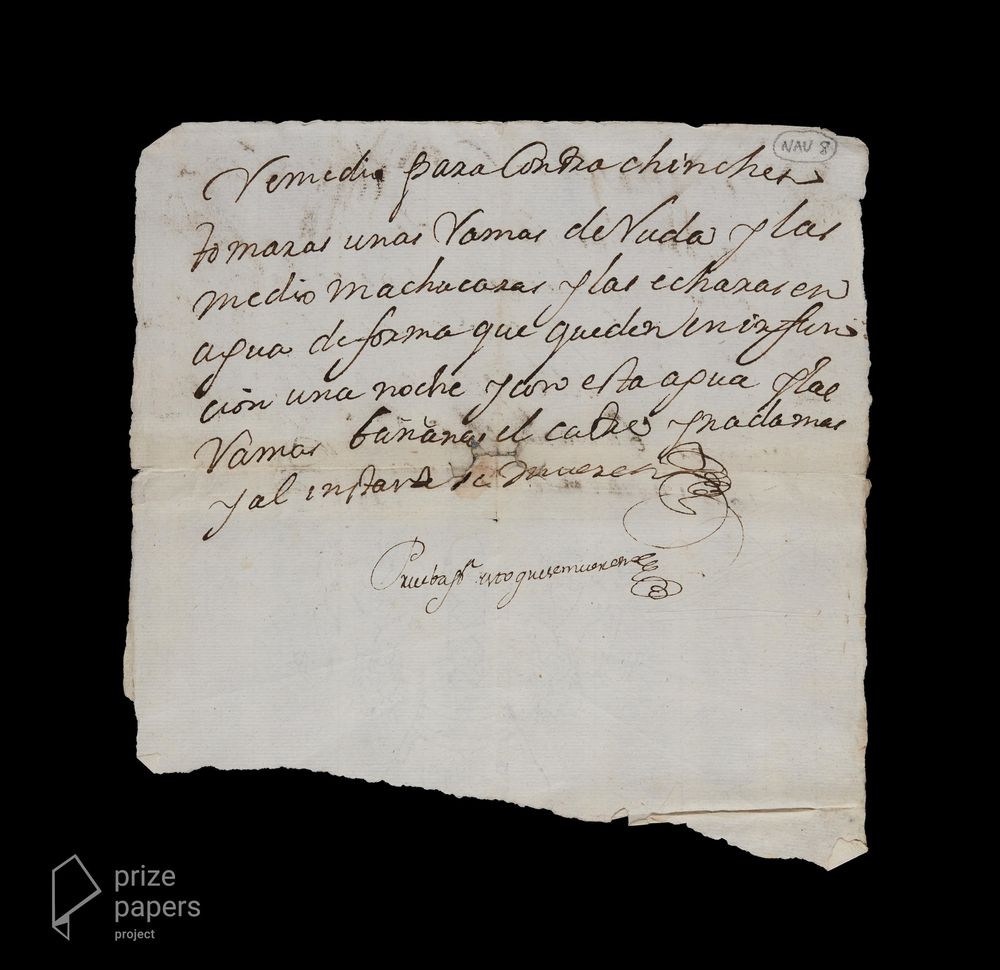 NAV 8
Remedio para Contra chinches
tomaras unas Ramas de Ruda y las
medio machacaras y las echaras en
agua de forma que queden en infun
cion una noche y con esta agua y las
Ramas bañaras el catre y nada mas
y al instante se mueren
Prueba pª esto que se mueren
prize
papers
project